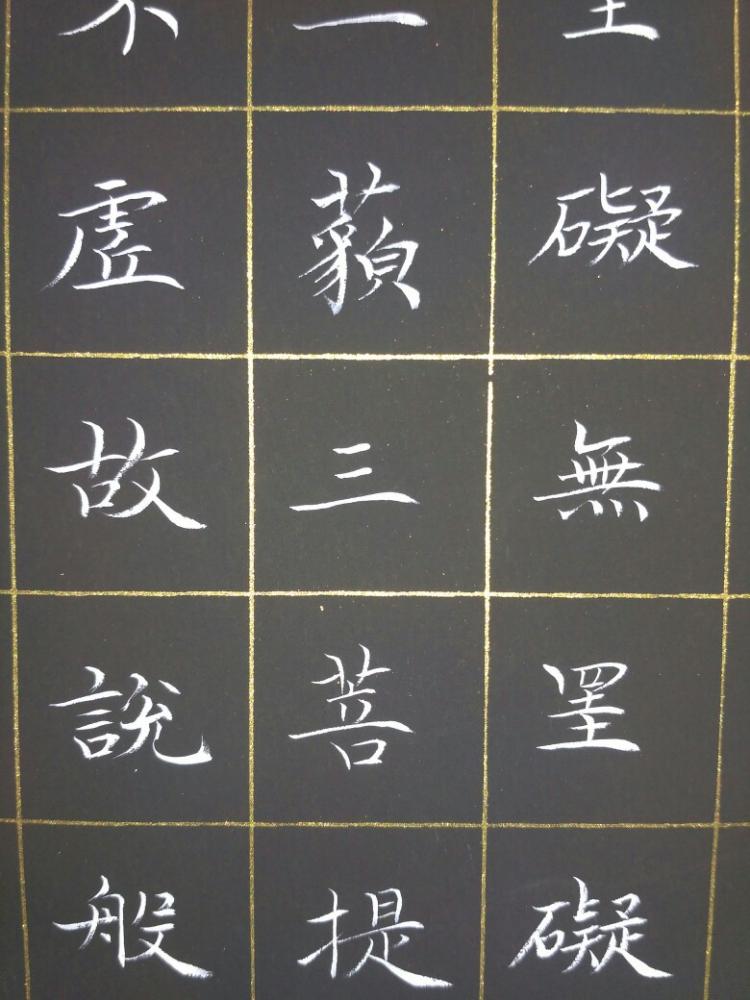 礙無罣礙
藐三菩提
虛故說般